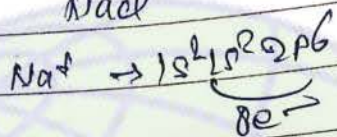 Nacl
Na⁺ → 1s² 2s² 2p6
8e⁻